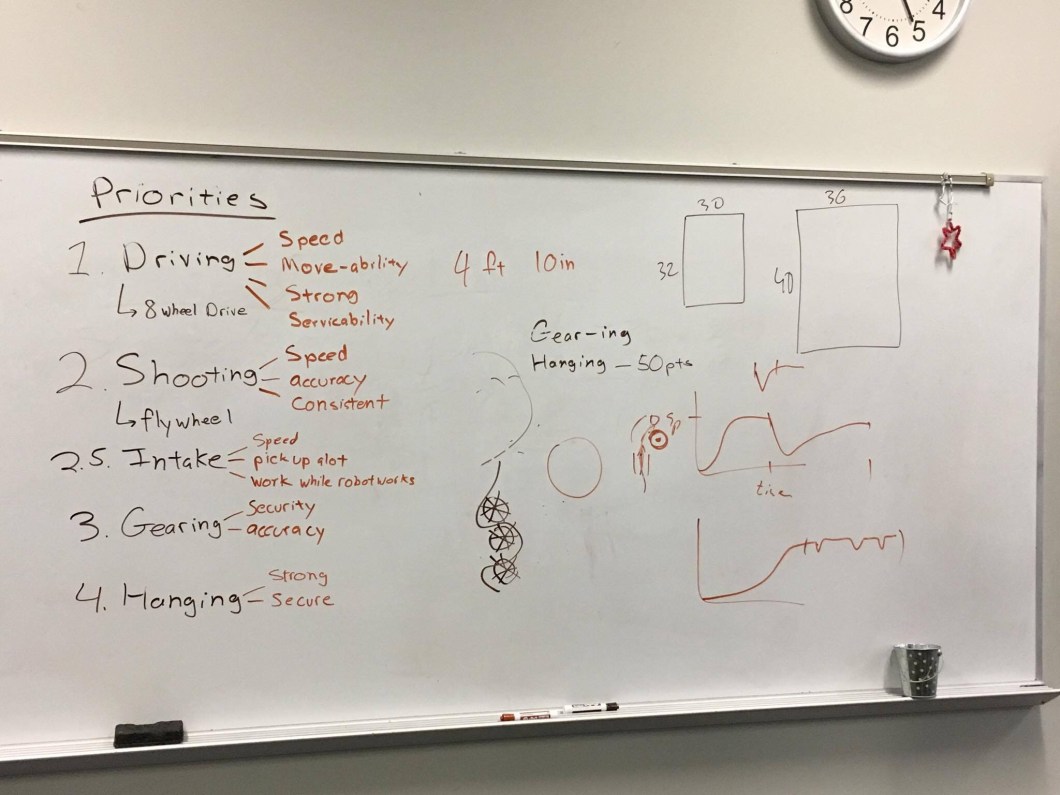 Priorities
1. Driving
Speed
Move-ability
Strong
Servicability
↳ 8 wheel Drive
2. Shooting
Speed
accuracy
Consistent
↳ flywheel
2.5. Intake
Speed
pick up alot
work while robot works
3. Gearing
Security
accuracy
4. Hanging
Strong
Secure
4 ft 10in
Gear-ing
Hanging - 50pts
30
32
36
40
Sp
8 7 6 5 4